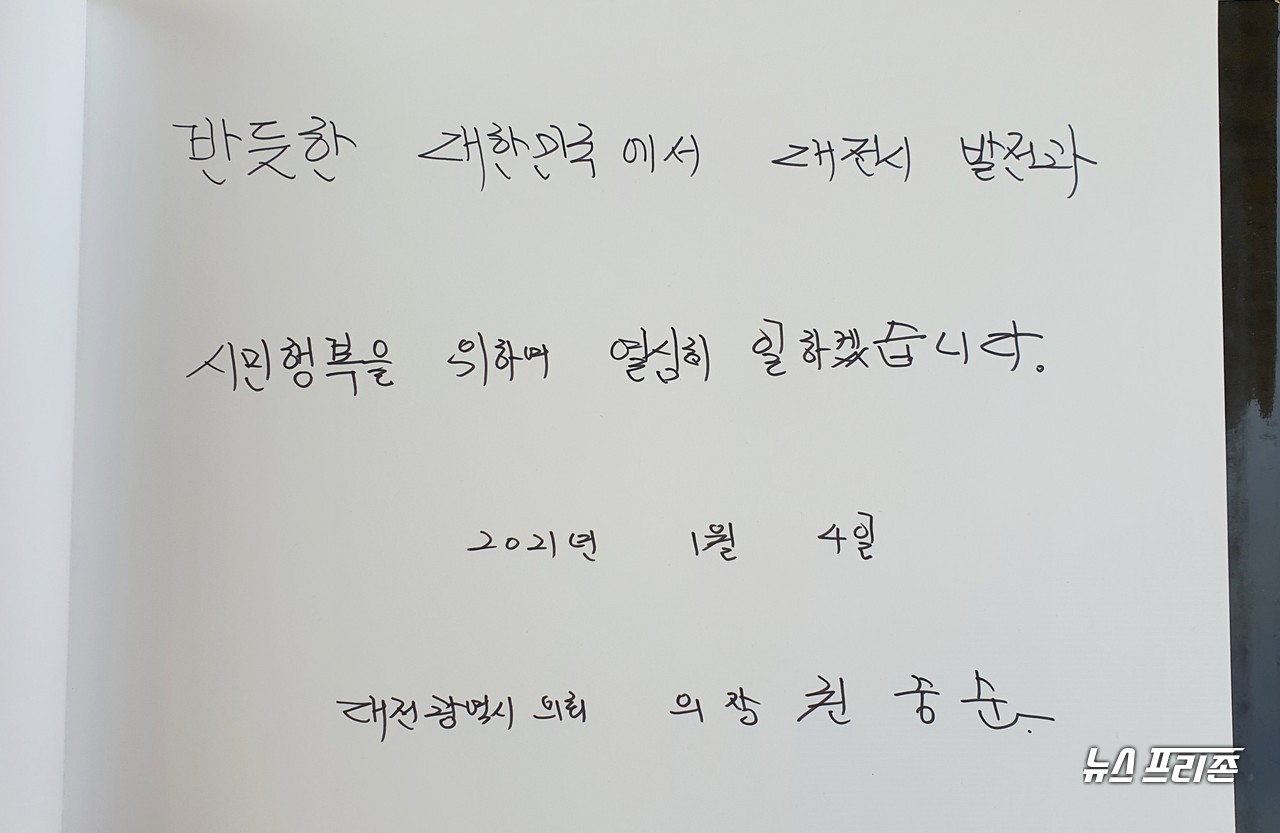 반듯한 대한민국에서 대전시 발전과
시민행복을 위하여 열심히 일하겠습니다.
2021년 1월 4일
대전광역시 의회 의장 권 중 순.
뉴스프리존